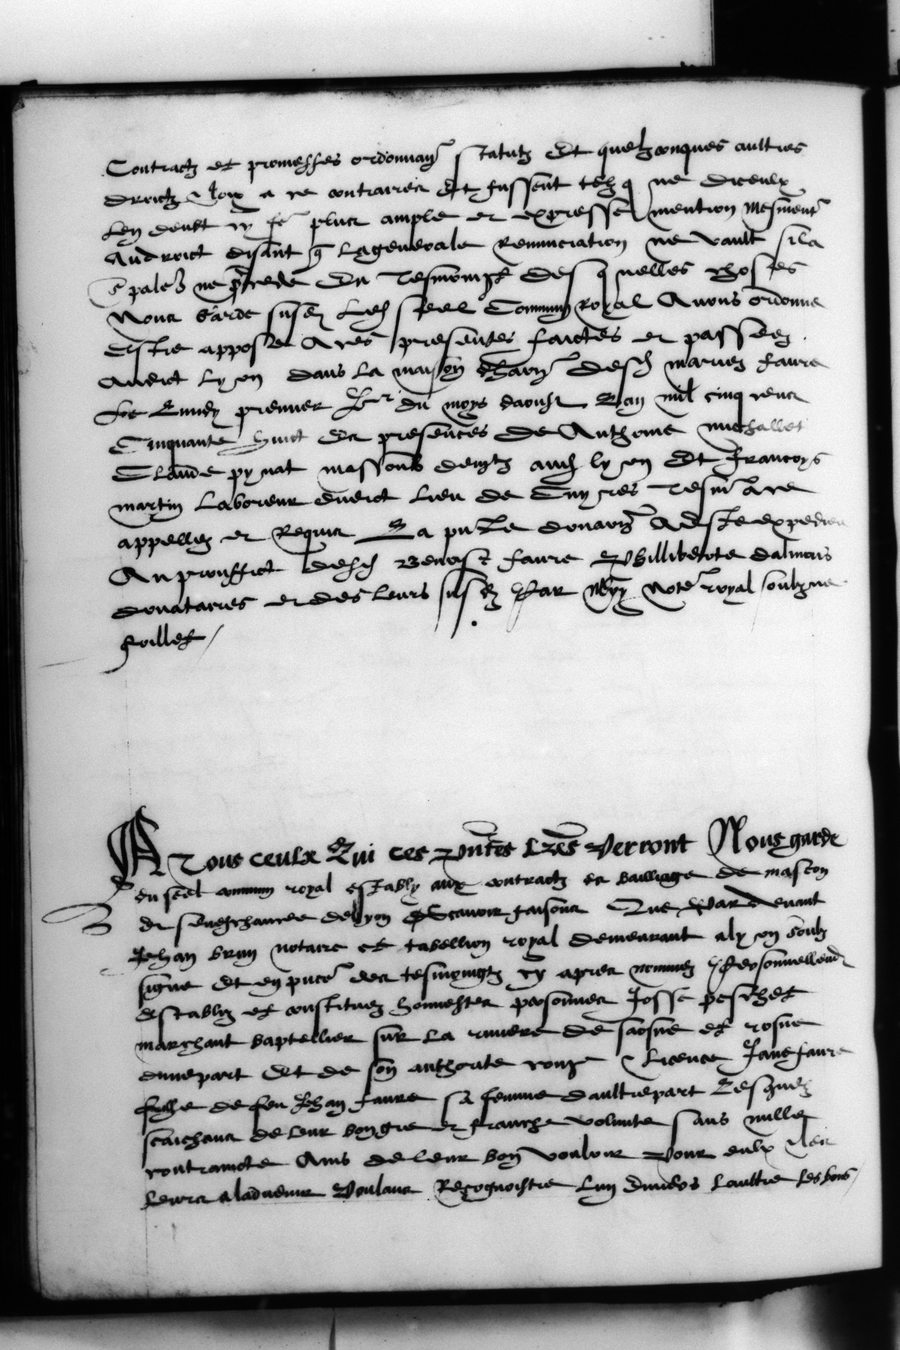 Contractz et promesses ordonnanc statutz Et quelzconques aultres
droictz Loix a ce contraires Et fussent telz q ne diceulx
Len deubt cy fe plus ample et expresse mention Mesment
Audroict disant q Lagenerale Renunciation ne vault sila
espale ne precede En Tesmoing desquelles choses
Nous Garde susd Led seel Commun royal Avons ordonne
estre appose A ces presentes faictes et passees
Audict Lyon dans La maison desd mariez faure
Le Lundy premier Jr du moys daoust Lan mil cinq cens
Cinquante huict Es presences de Anthoine michallet
Claude pynat massons demz aud lyon Et francoys
martin Laboreur dudict Lieu de Tesm a ce
appellez et Requis La pnte donaon A este expediee
Au prouffict desd Benoist faure Philliberte dalmais
donataires et des leurs susd Par Moy Note royal soubzne
Foillet
A Tous ceulx Qui ces pntes Lres Verront Nous garde
du seel commun royal estably aux contractz es bailliage de mascon
et senechaucee de lyon Scavoir faisons Que Par devant
Jehan brun notaire et tabellion royal demeurant a lyon soubz
signe Et en pnce des tesmoingtz cy apres nommez Personnellemt
establiz et constituez honnestes personnes Josse peschet
marchant baptellier sur La riviere de saosne et rosne
dunepart Et de son authorite conge Licence Jane faure
fille de feu Jehan faure sa femme daultrepart Lesquelz
scaichans de leur bon gre et franche volunte sans nulle
contraincte Ains de leur bon vouloir Pour eulx
Leurs aladvenir Voulans Recognoistre Lun envers Laultre les bons